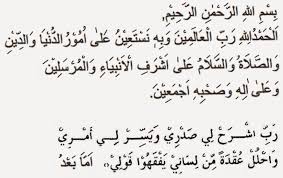 بِسْمِ اللهِ الرَّحْمٰنِ الرَّحِيْمِ,
اَلْحَمْدُ ِللهِ رَبِّ الْعَالَمِيْنَ وَبِهِ نَسْتَعِيْنُ عَلَى أُمُوْرِ الدُّنْيَا وَالدِّيْنِ
وَالصَّلَاةُ وَالسَّلَامُ عَلَى أَشْرَفِ الْأَنْبِيَاءِ وَالْمُرْسَلِيْنَ
وَعَلَى اٰلِهِ وَصَحْبِهِ اَجْمَعِيْنَ.
رَبِّ اشْرَحْ لِي صَدْرِيْ وَيَسِّرْ لِــي أَمْرِيْ
وَاحْلُلْ عُقْدَةً مِّنْ لِسَانِيْ يَفْقَهُوْا قَوْلِيْ. اَمَّا بَعْدُ